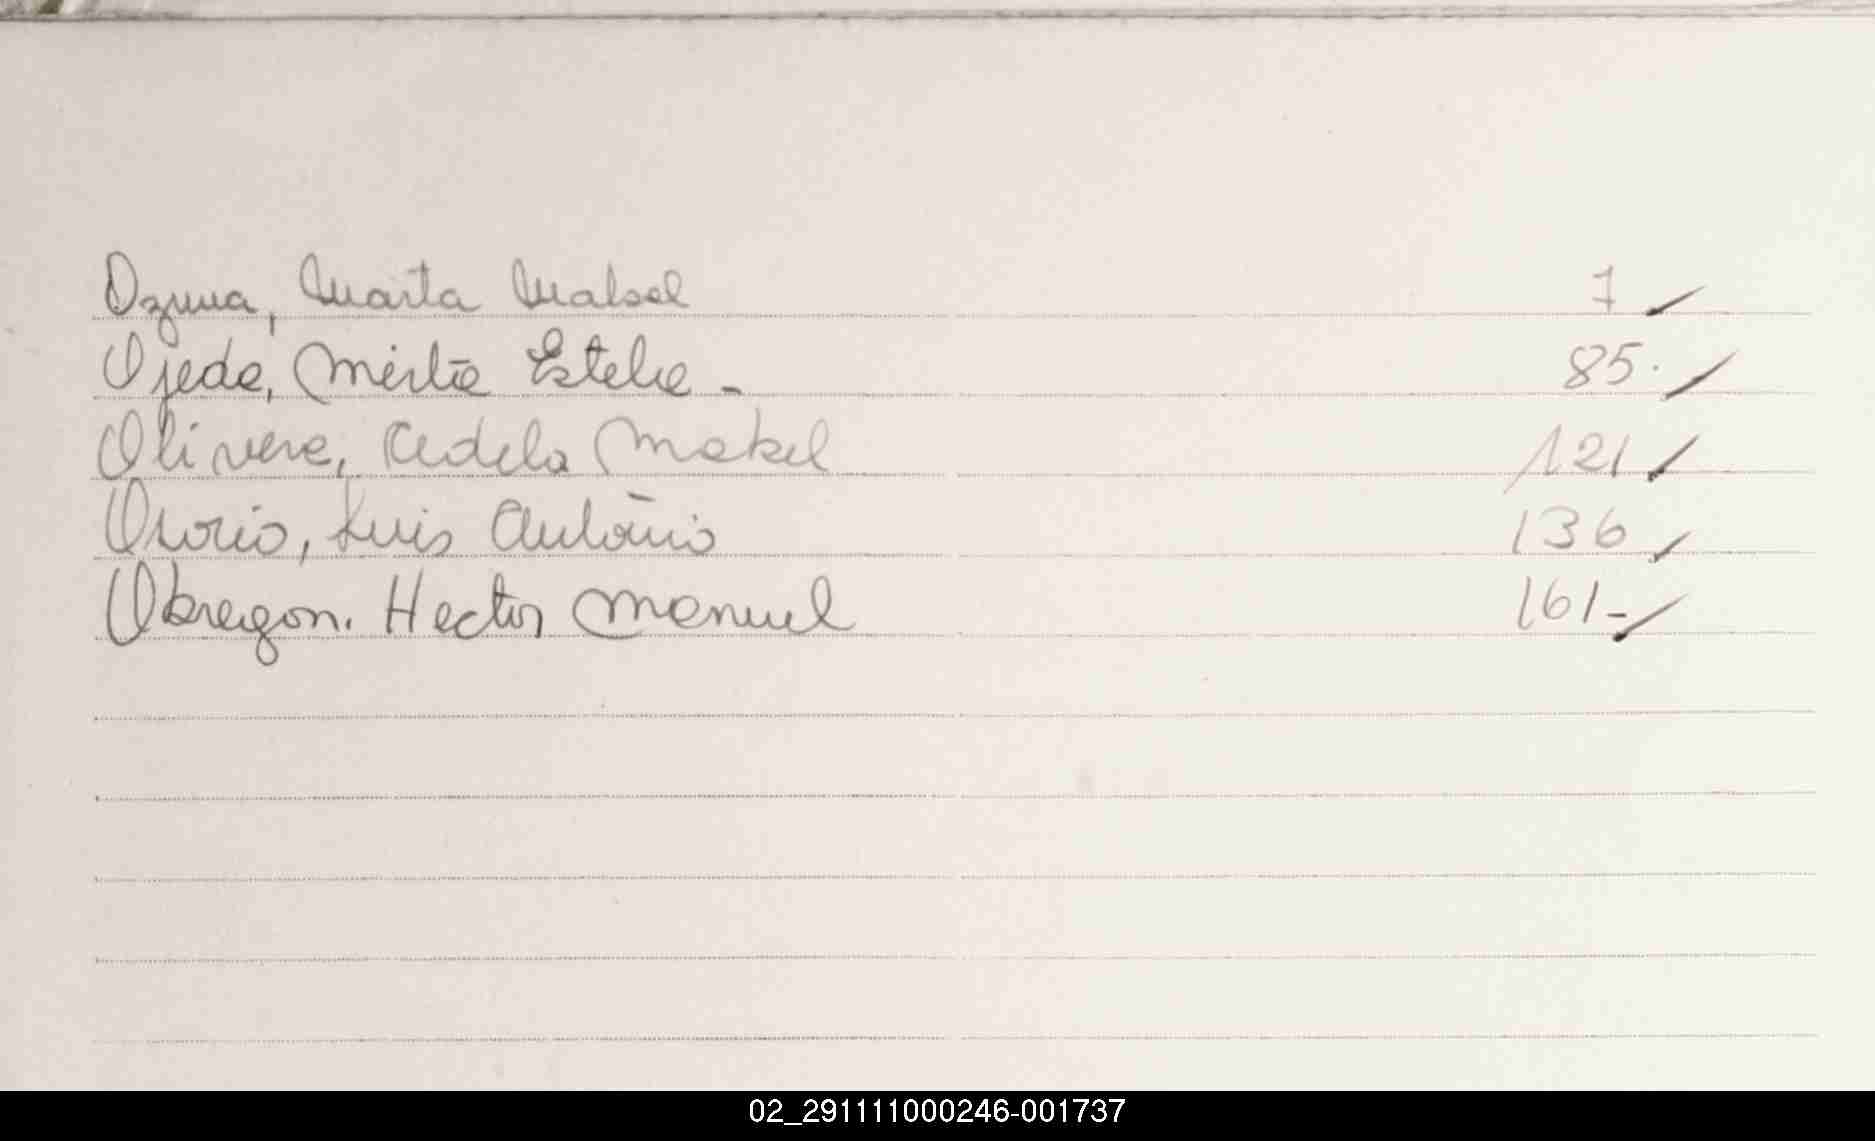 Ozuna, Marta Mabel 7
Ojeda, Mirtha Estela - 85.
Olivera, Adela Mabel 121
Osorio, Luis Antonio 136
Obregon. Hector Manuel 161-
02_291111000246-001737